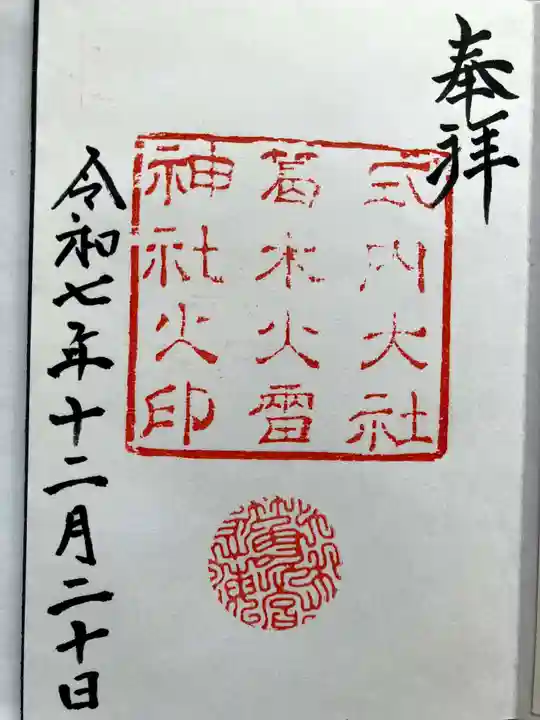 奉拝
式内大社
葛木火雷
神社之印
令和七年十二月二十日